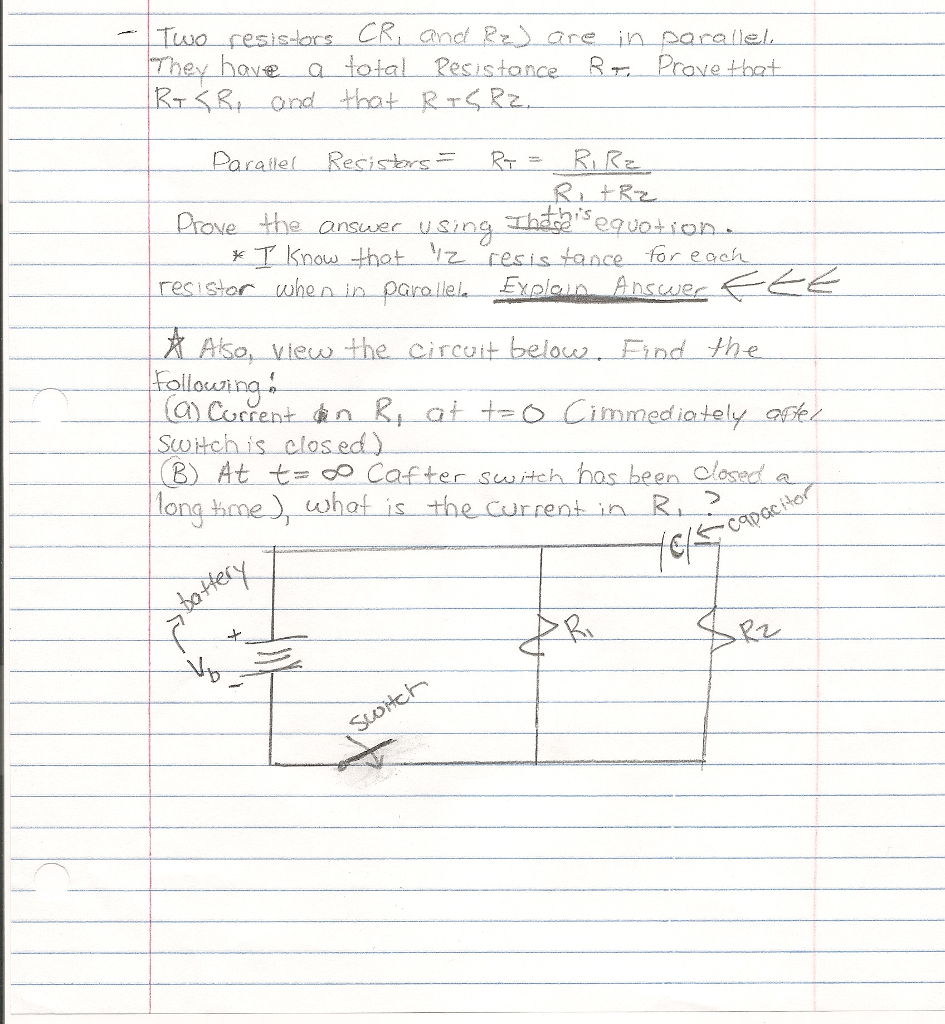 - Two resistors (R1 and R2) are in parallel.
They have a total Resistance RT. Prove that
RT < R1 and that RT < R2.
Parallel Resistors = RT = R1 R2
R1 + R2
Prove the answer using this equation.
* I know that 1/2 resistance for each
resistor when in parallel. Explain Answer ←←←
☆ Also, view the circuit below. Find the
following:
(a) Current in R1 at t=0 (immediately after
switch is closed)
(B) At t=∞ (after switch has been closed a
long time), what is the current in R1?
C ← capacitor
battery
+
Vb
-
R1
R2
switch